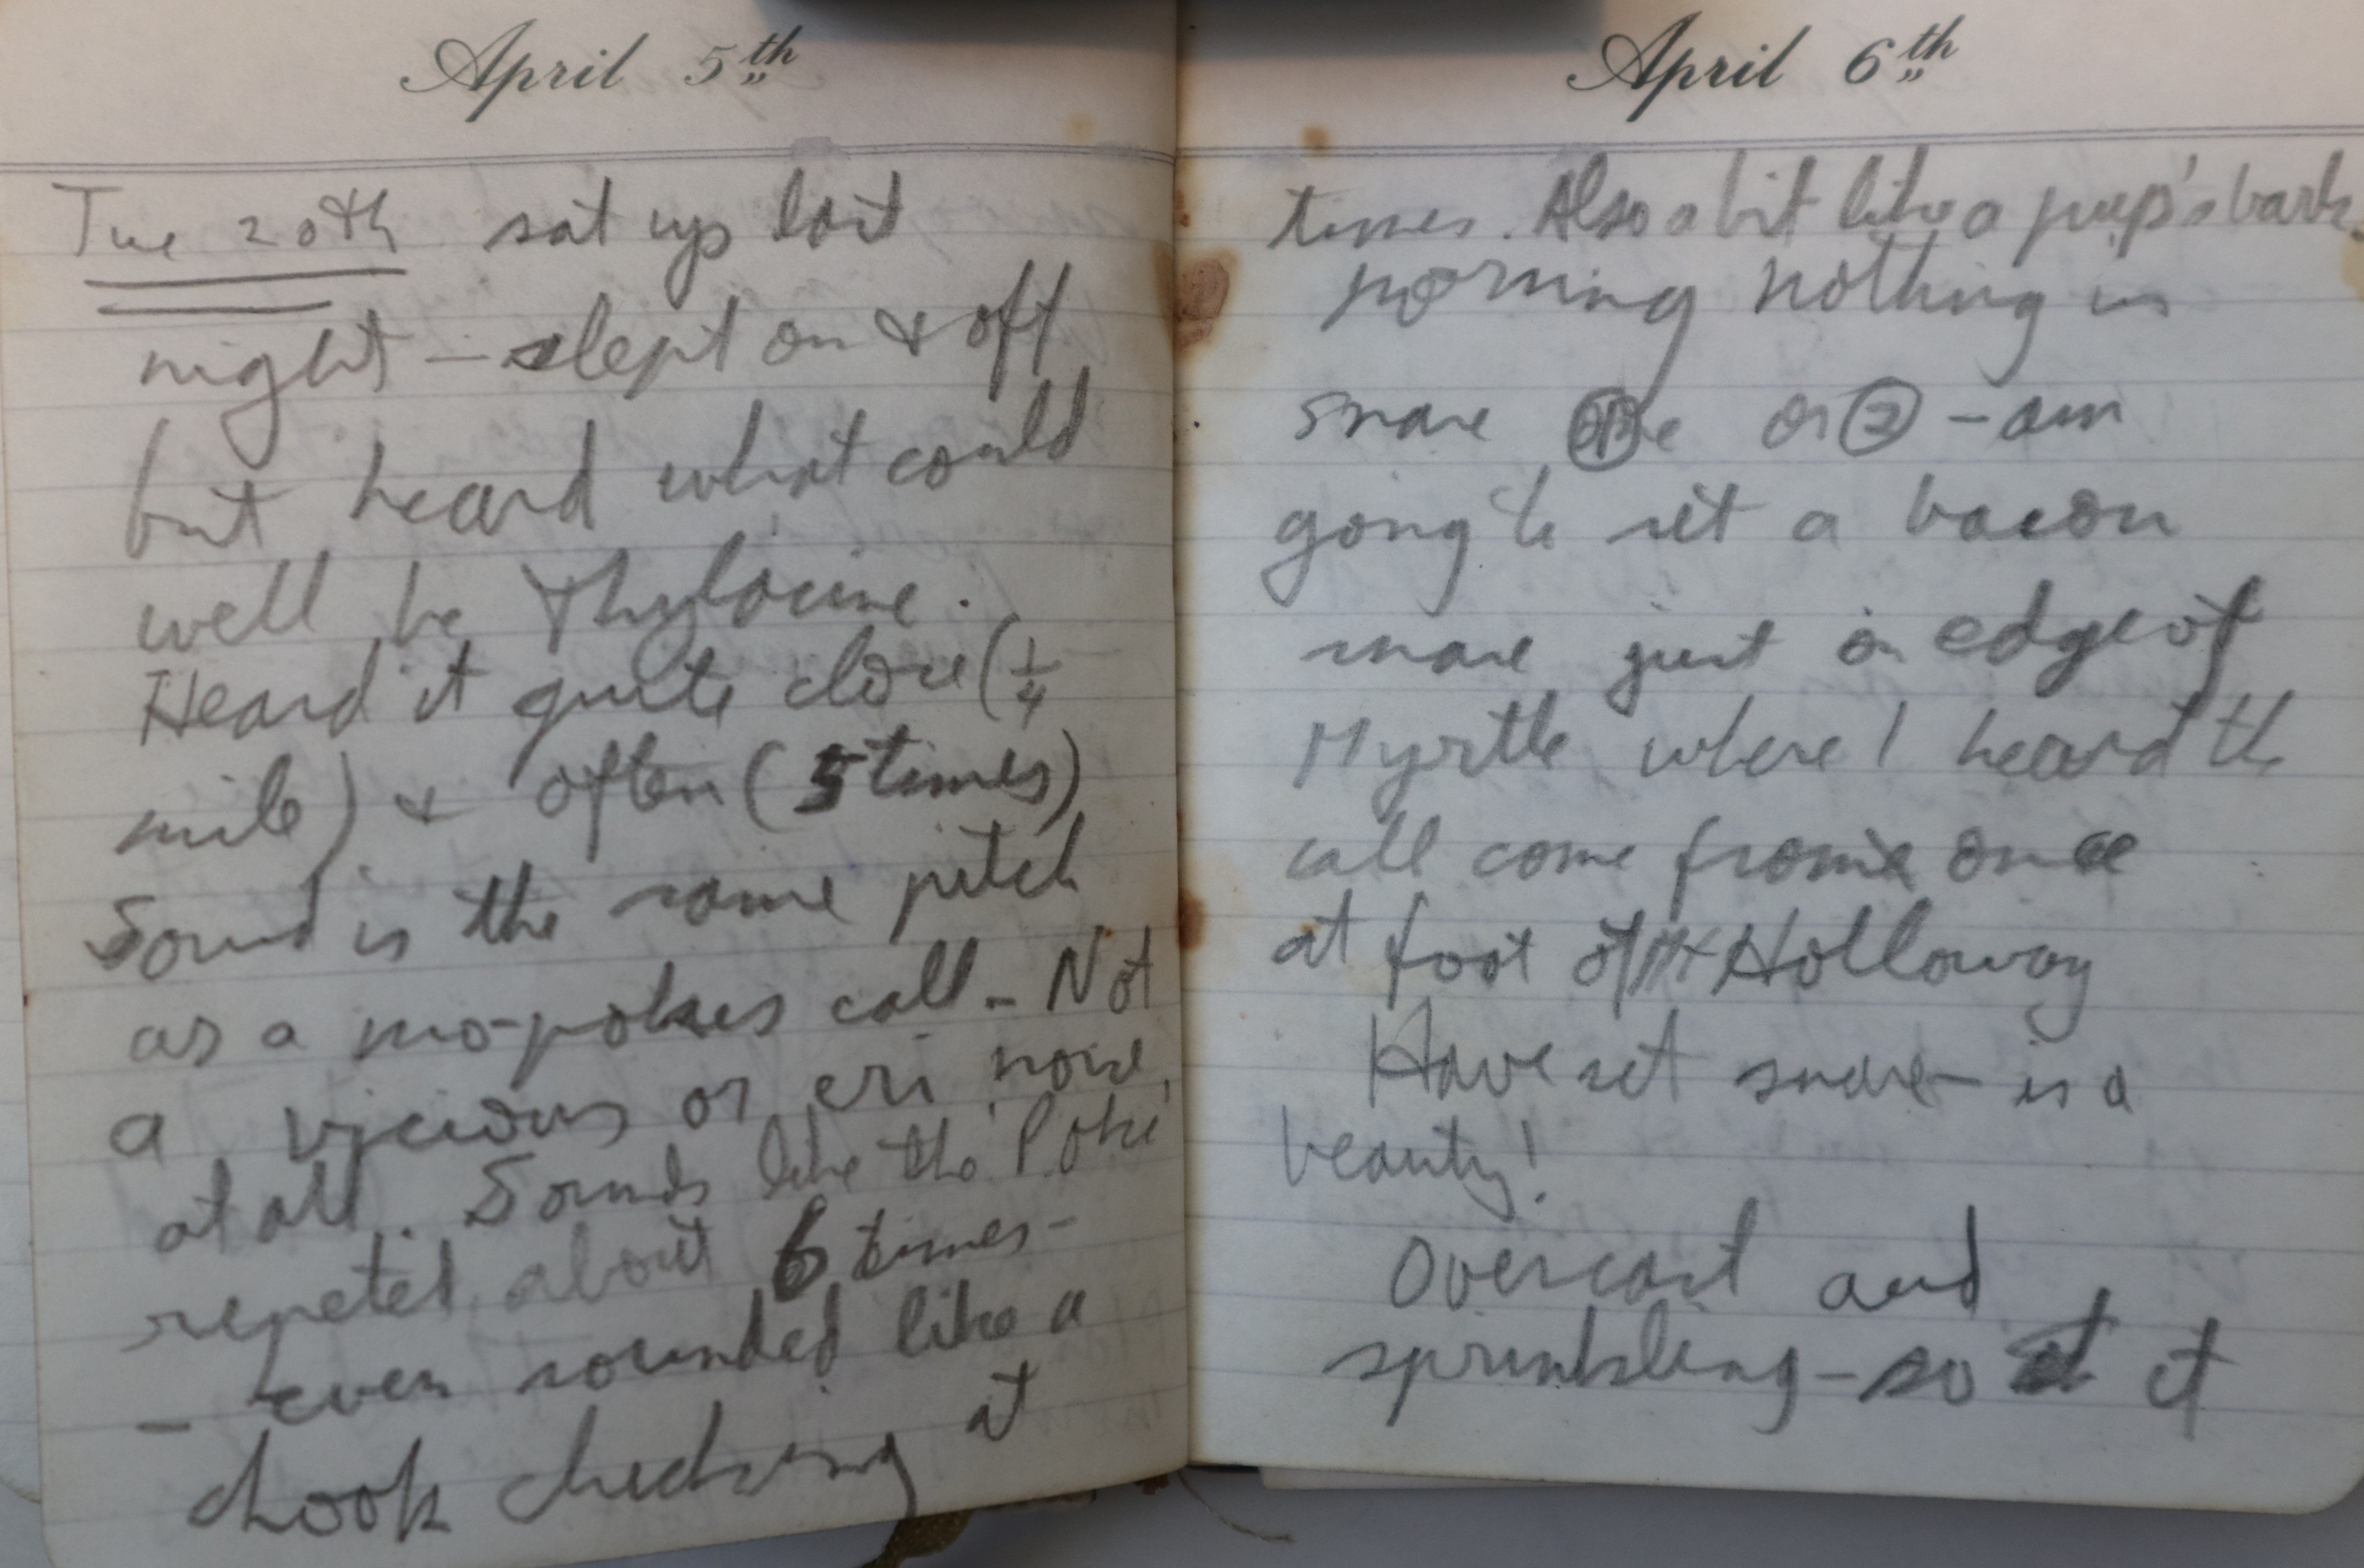 April 5th
Tue 20th sat up last
night - slept on & off
but heard what could
well be Thylacine.
Heard it quite close (1/4
mile) & often (5 times)
Sound is the same pitch
as a mo-pokes call - Not
a vicious or eri noise,
at all. Sounds like the 'Poke'
repeted about 6 times -
- even sounded like a
chook chucking at
April 6th
times. Also a bit like a pup's bark.
Morning nothing in
snare one or 2 - am
going to set a bacon
snare just on edge of
Myrtle where I heard th
call come from once
at foot of Mt Holloway
Have set snare - is a
beauty!
Overcast and
sprinkling - so it